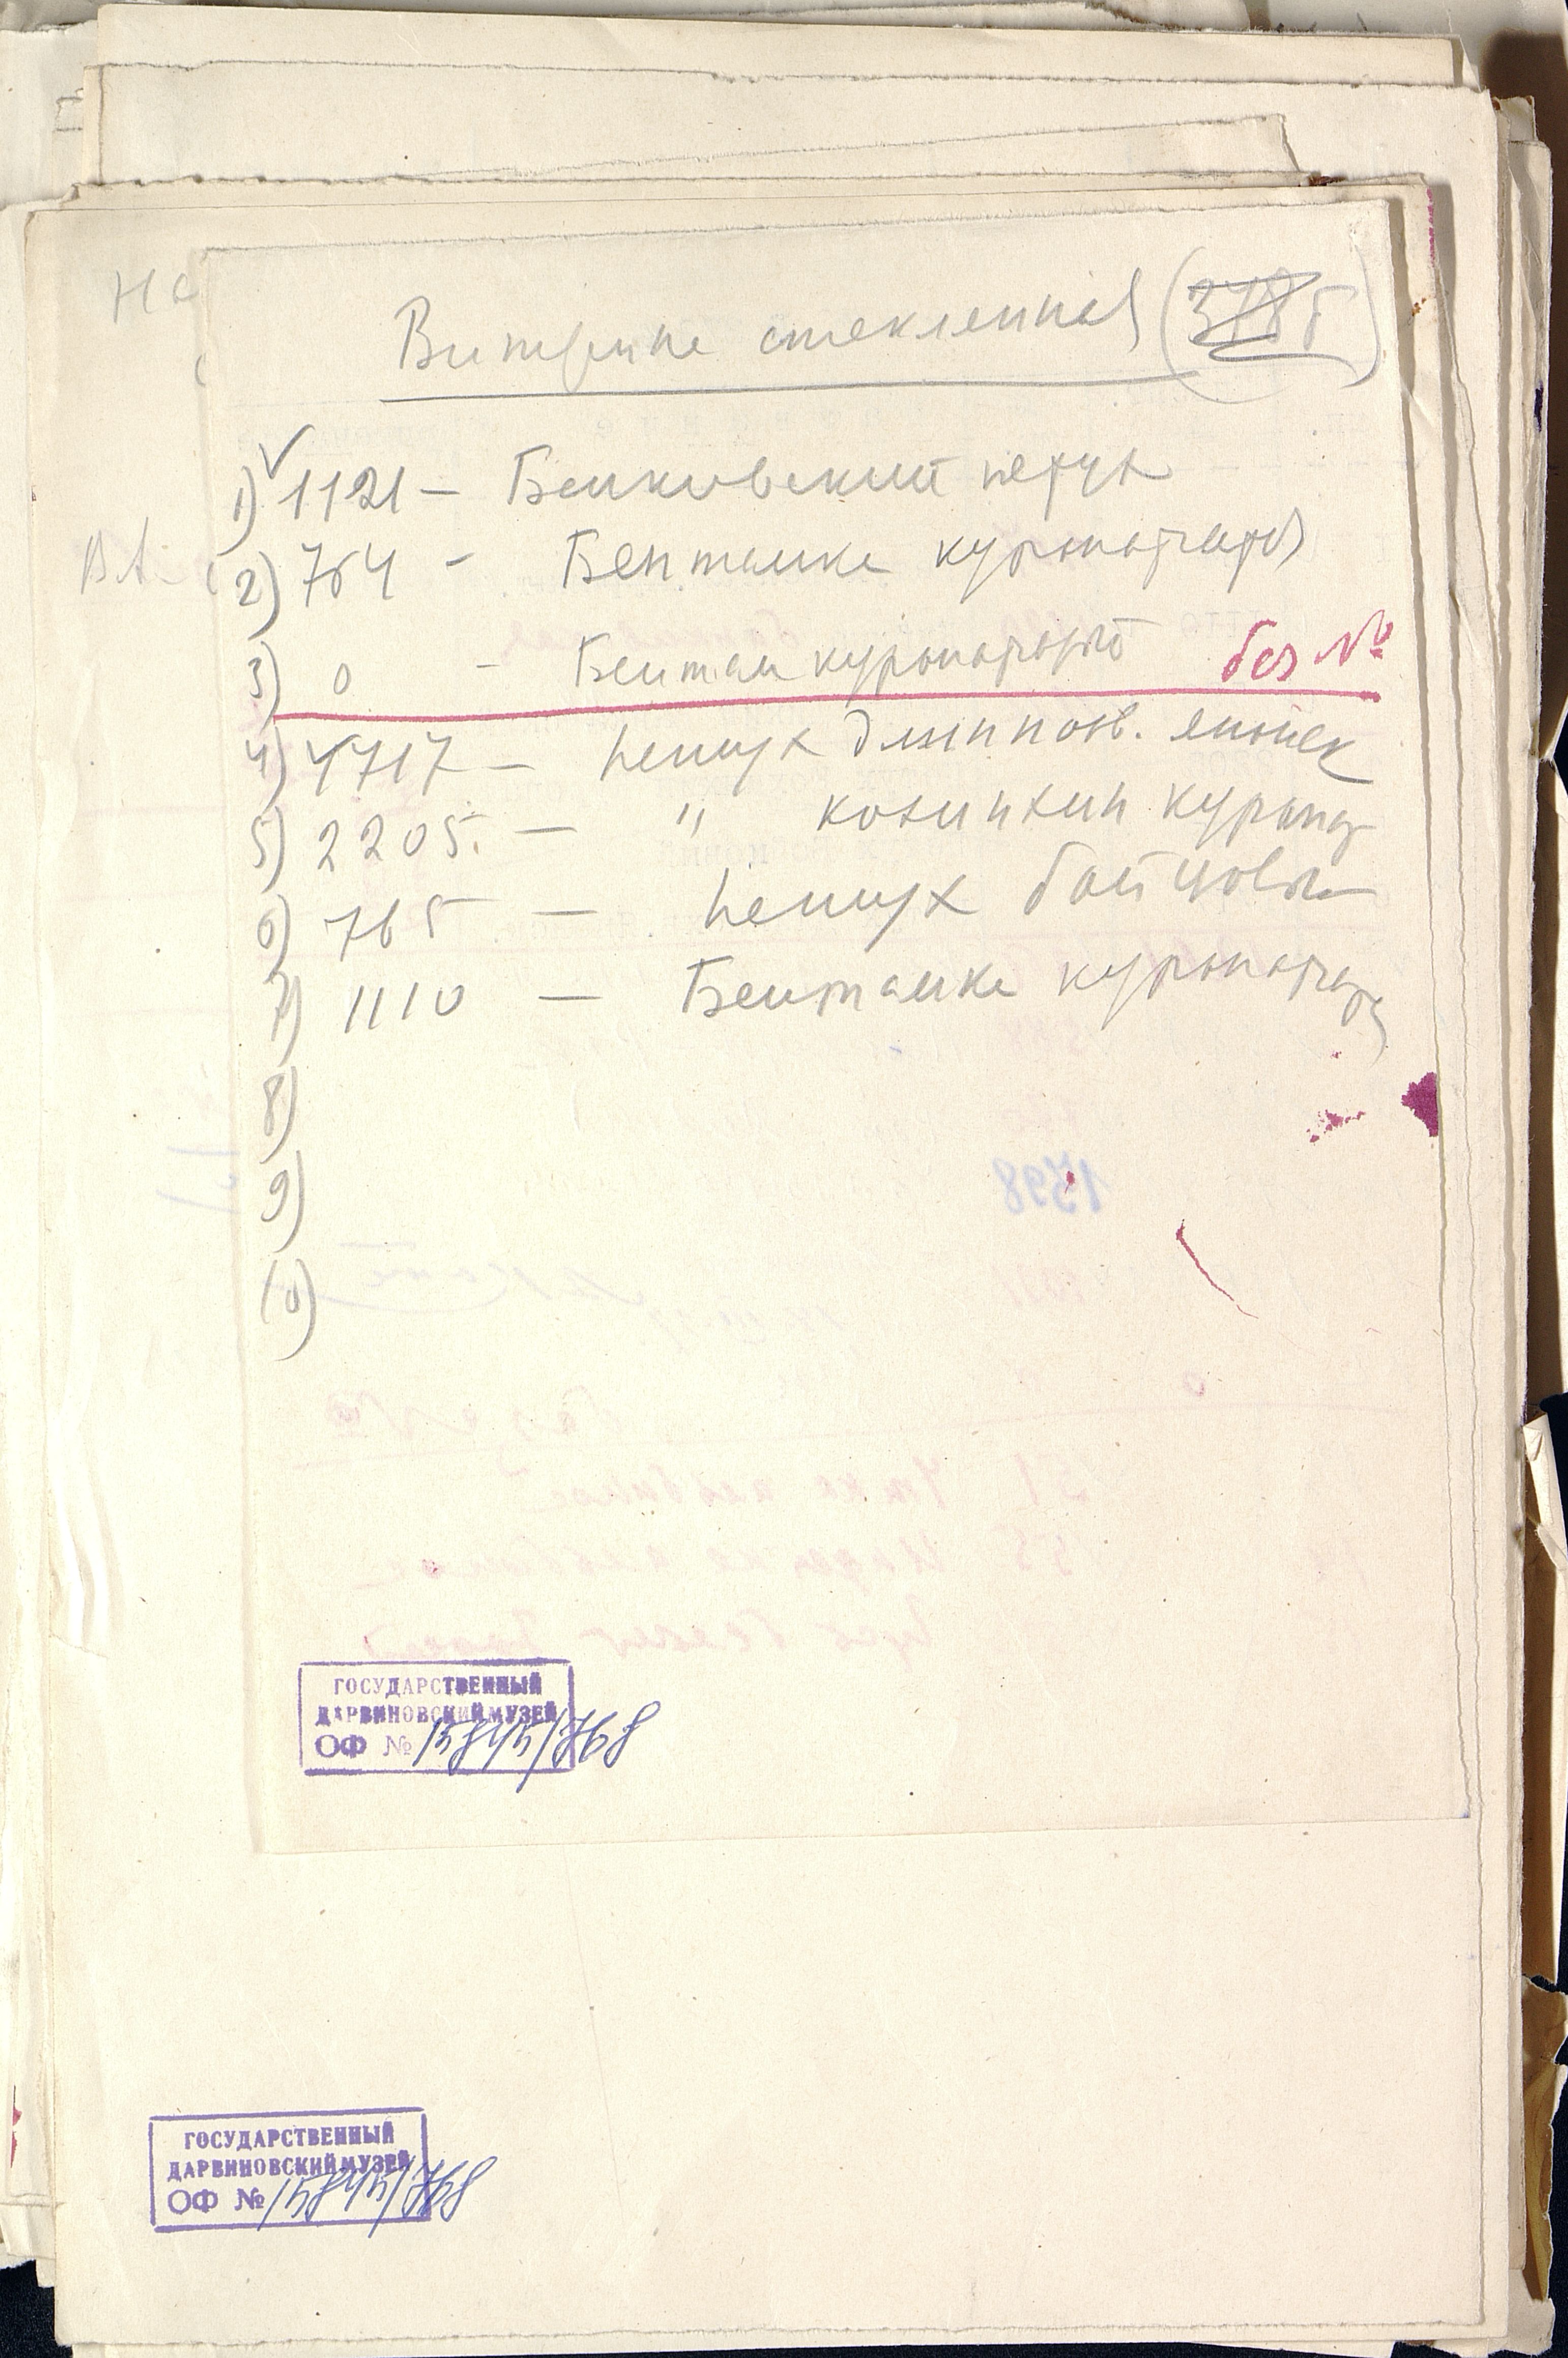 На
Витрина стеклянная
1) ✓ 1121 – Банкивский петух
Вл.
2) 764 – Бентамка куропатчат
3) 0 – Бентам куропатчат без №
4) 4717 – Петух длиннохв. японск
5) 2205 – " кохинхин куропат
6) 765 – Петух бойцовы
7) 1110 – Бентамка куропатчат
8)
9)
0)
ГОСУДАРСТВЕННЫЙ
ДАРВИНОВСКИЙ МУЗЕЙ
ОФ № 15845/768
ГОСУДАРСТВЕННЫЙ
ДАРВИНОВСКИЙ МУЗЕЙ
ОФ № 15845/768